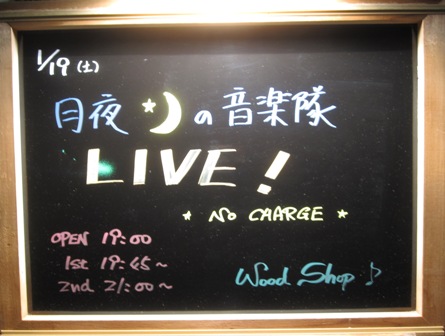 1/19(土)
月夜の音楽隊
LIVE!
★ NO CHARGE ★
OPEN 19:00
1st 19:45~
2nd 21:00~
Wood Shop ♪